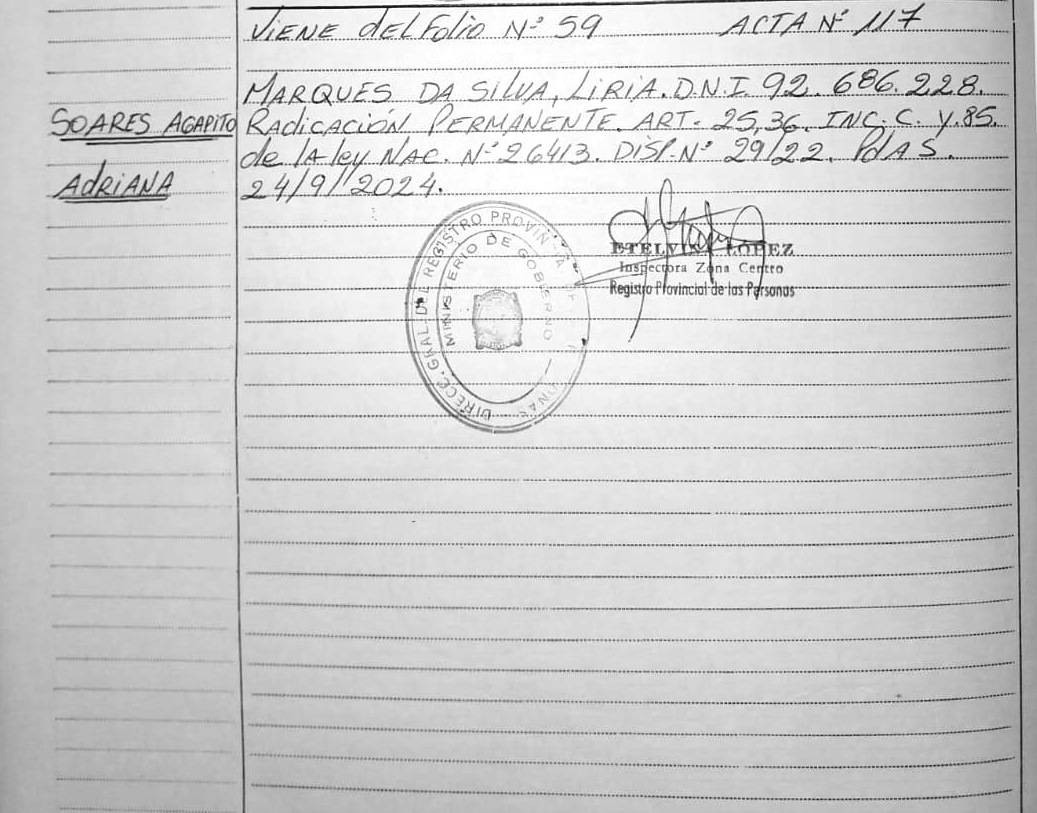 VIENE del Folio Nº 59 ACTA Nº 117
MARQUES DA SILVA, LIRIA. D.N.I. 92.686.228.
SOARES AGAPITO
ADRIANA
Radicación PERMANENTE. ART. 25,36. INC. C. y.85.
de la ley NAC. Nº 26413. DISP. Nº 29/22. PdAS.
24/9/2024.
ETELVINA LÓPEZ
Inspectora Zona Centro
Registro Provincial de las Personas
DIRECC. GRAL. DEL REGISTRO PROVIN
MINISTERIO DE GOBIERNO